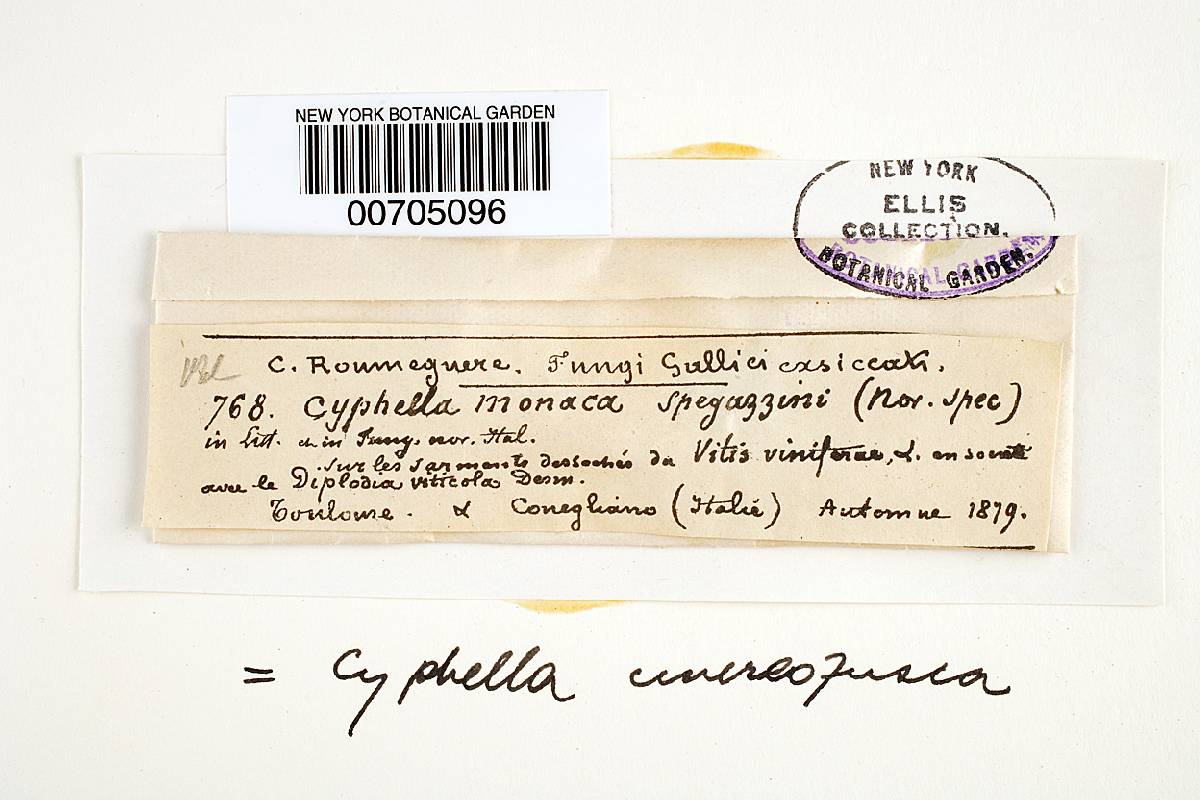 NEW YORK BOTANICAL GARDEN
00705096
NEW YORK
ELLIS
COLLECTION.
BOTANICAL GARDEN.
C. Roumeguere. Fungi Gallici exsiccati.
768. Cyphella monaca Spegazzini (Nov. spec)
in Litt. & in Fung. nov. Ital.
sur les sarments dessechés du Vitis viniferae, &. en societé
avec le Diplodia viticola Desm.
Toulouse. & Conegliano (Italie) Automne 1879.
= Cyphella cinereofusca